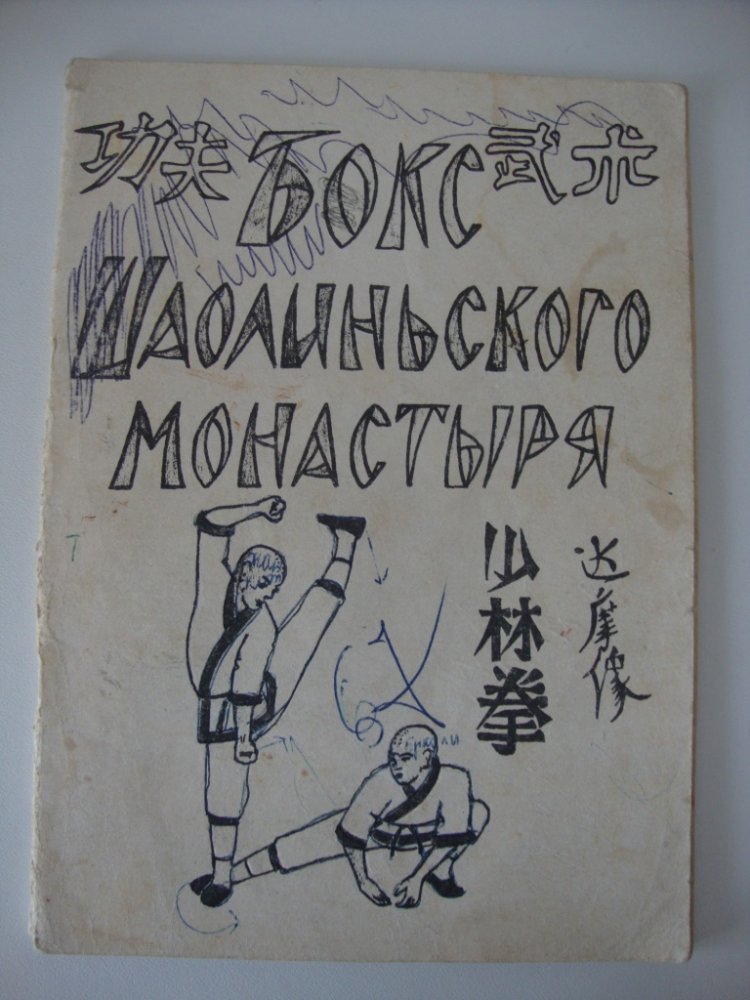 功夫 БОКС 武术
ШАОЛИНЬСКОГО
МОНАСТЫРЯ
少林拳
达摩像